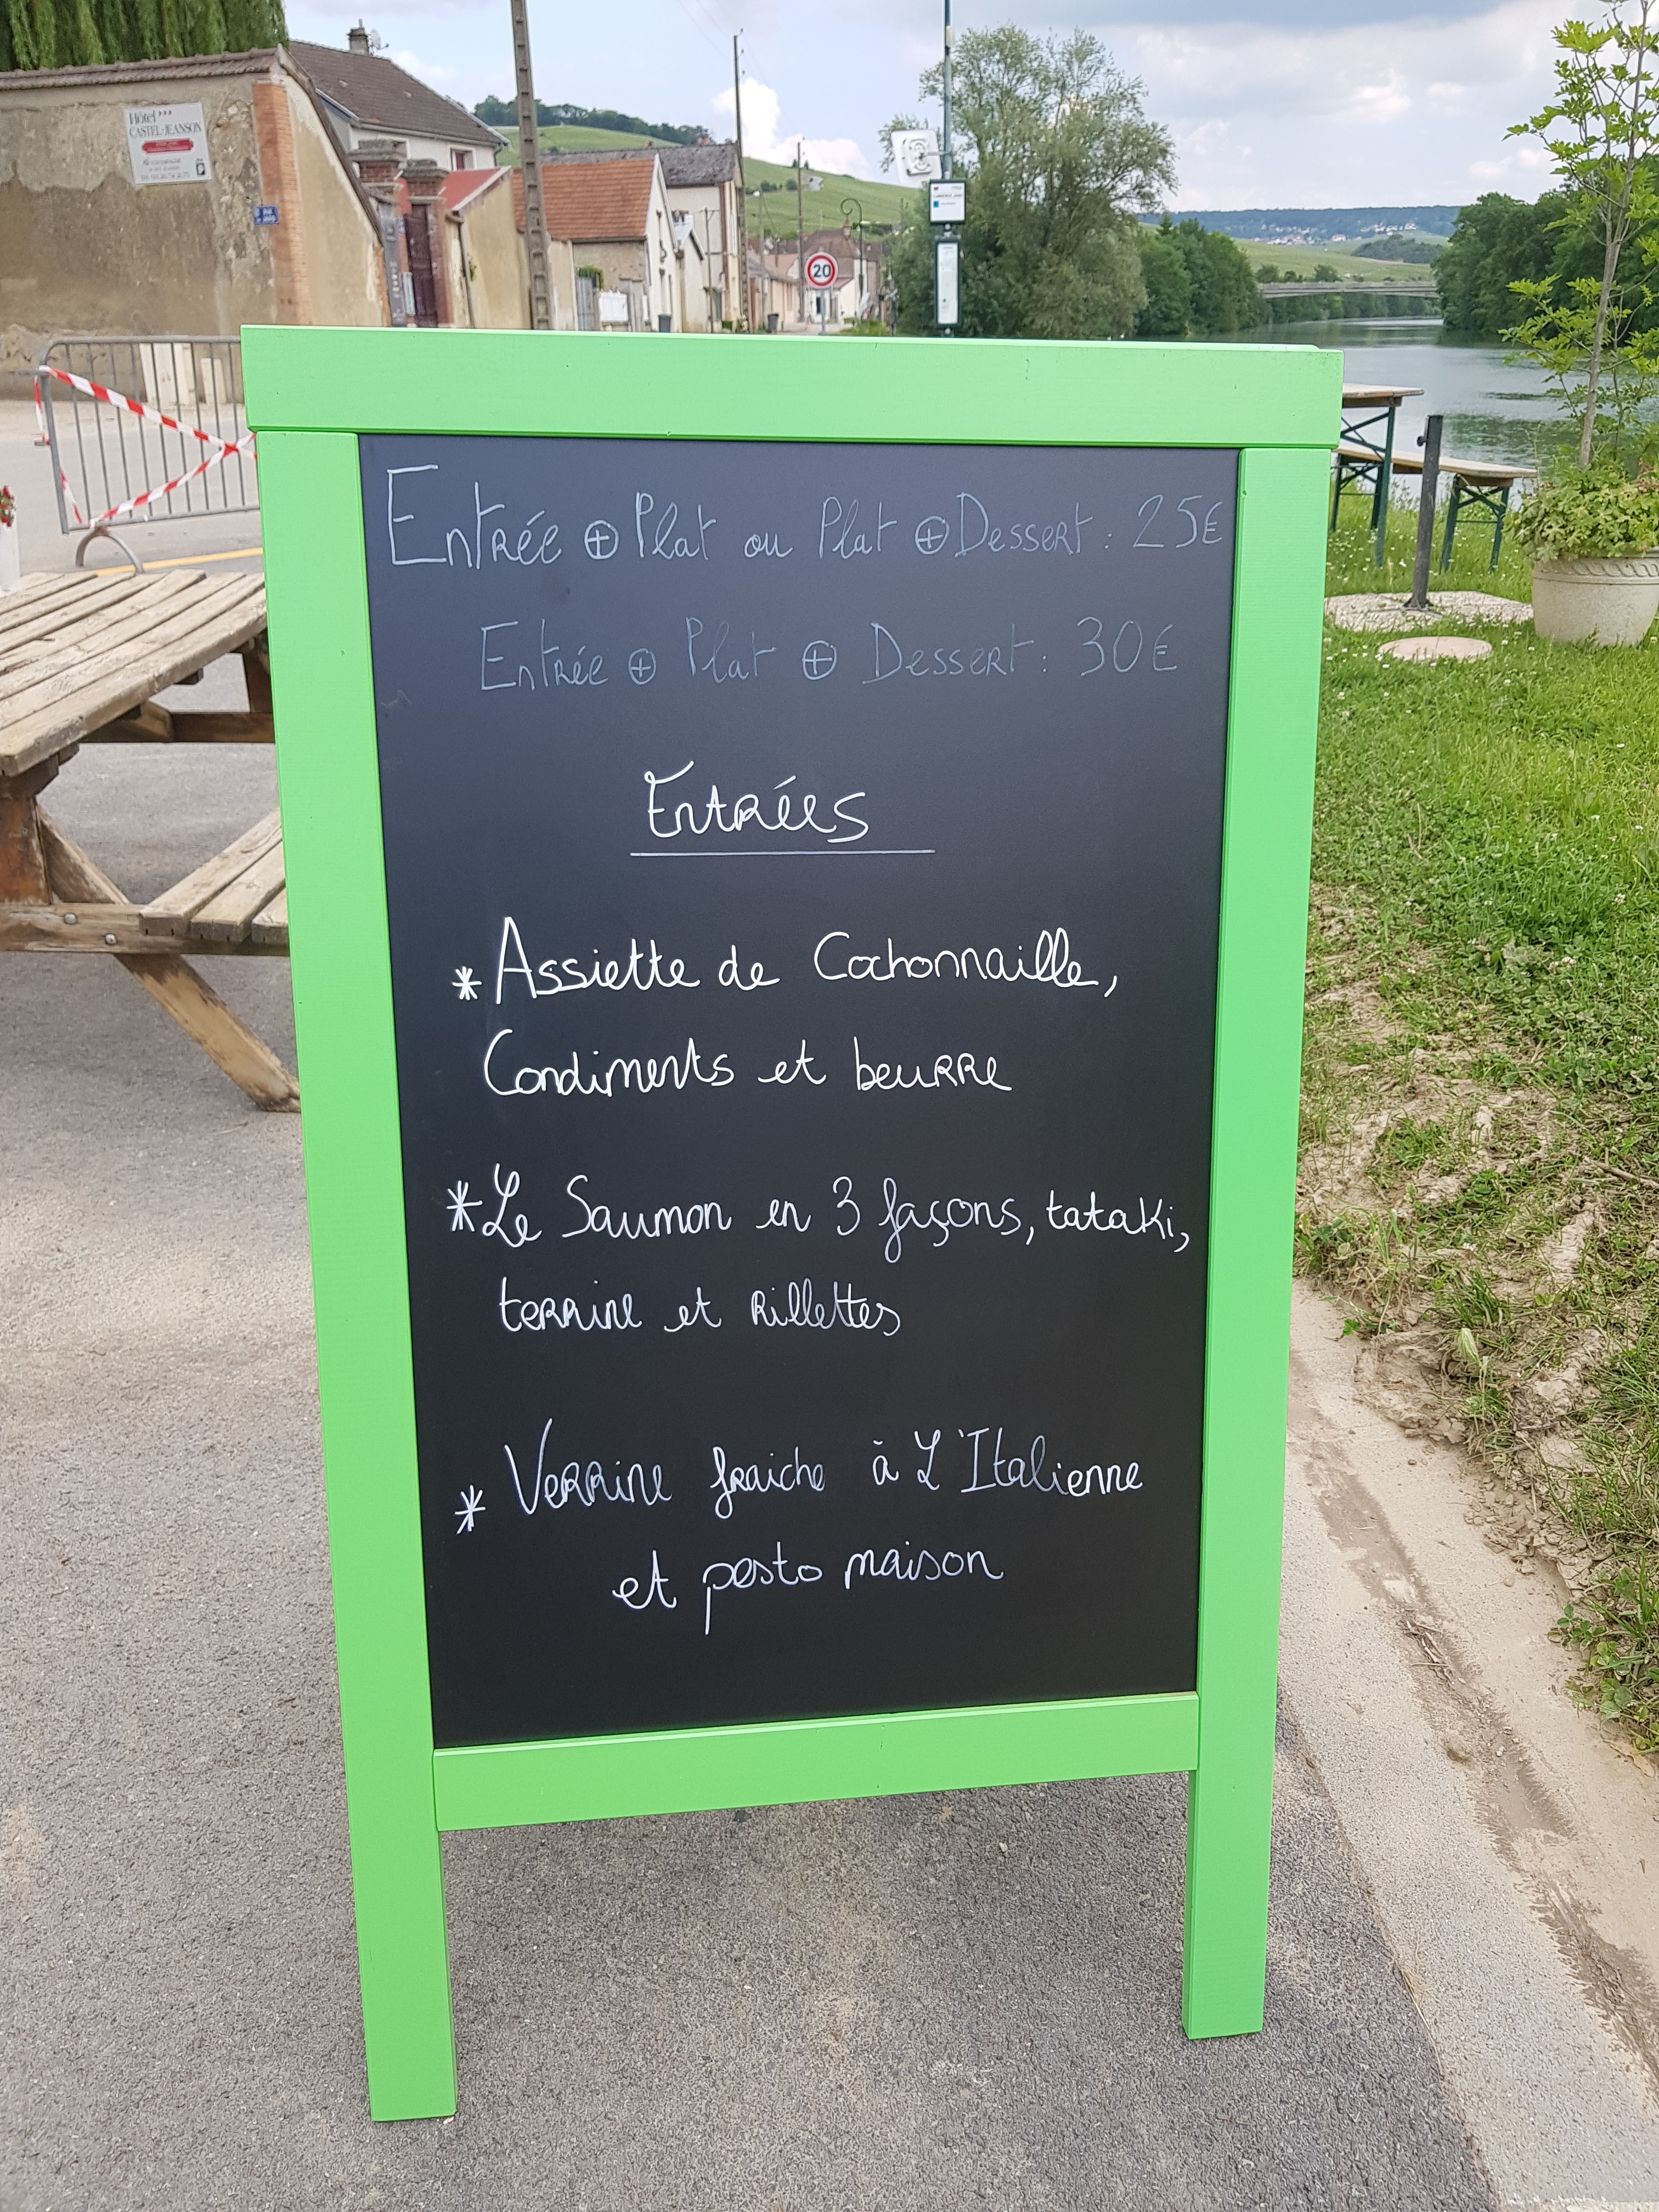 Hôtel ***
CASTEL-JEANSON
20
Entrée ⊕ Plat ou Plat ⊕ Dessert : 25€
Entrée ⊕ Plat ⊕ Dessert : 30€
Entrées
* Assiette de Cochonnaille,
Condiments et beurre
* Le Saumon en 3 façons, tataki,
terrine et rillettes
* Verrine fraiche à L'Italienne
et pesto maison